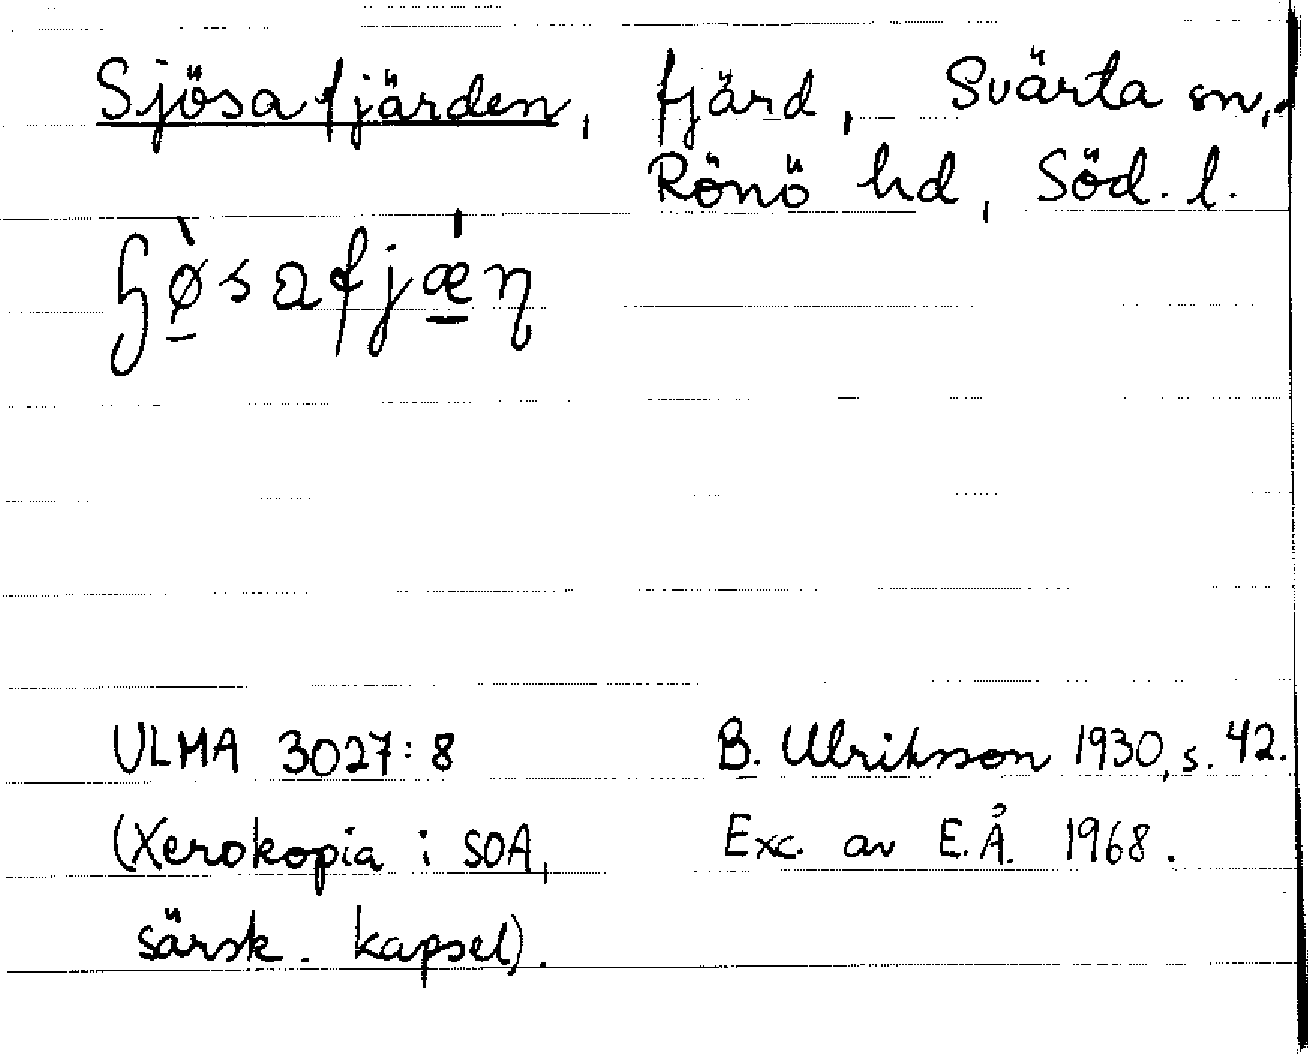 Sjösafjärden, fjärd, Svärta sn,
Rönö hd, Söd. l.
ɧø̀safjǽη
ULMA 3027:8 B. Ulriksson 1930, s. 42.
(Xerokopia i SOA, Exc. av E.Å. 1968.
särsk. kapsel).